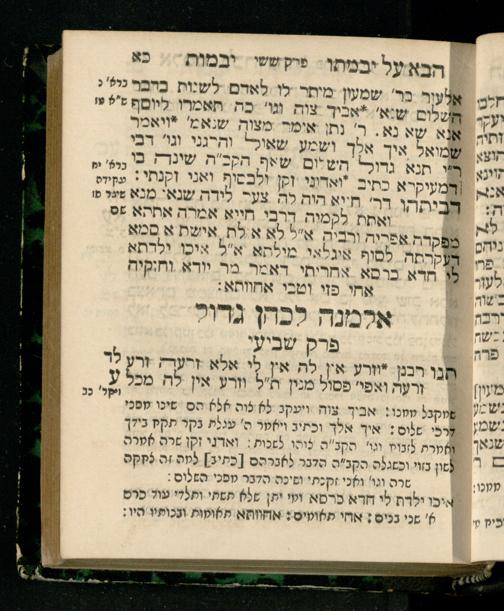 הבא על יבמתו פרק ששי יבמות כא
אלעזר בר' שמעון מותר לו לאדם לשנות בדבר
השלום שנא' *אביך צוה וגו' כה תאמרו ליוסף
אנא שא נא. ר' נתן אומר מצוה שנאמ' *ויאמר
שמואל איך אלך ושמע שאול והרגני וגו' דבי
ר"י תנא גדול השלום שאף הקב"ה שינה בו
דמעיקרא כתיב *ואדוני זקן ולבסוף ואני זקנתי:
דביתהו דר' חייא הוה לה צער לידה
ואתת לקמיה דרבי חייא אמרה אתתא
מפקדה אפריה ורביה א"ל לא אזלת אישתא סמא
דעקרתה לסוף איגלאי מילתא א"ל איכו ילדתא
לי חדא כרסא אחריתי דאמר מר יודא וחזקיה
אחי פזי וטבי אחוותא:
אלמנה לכהן גדול
פרק שביעי
תנו רבנן *וזרע אין לה אין לי אלא זרעה זרע
זרעה ואפי' פסול מנין ת"ל וזרע אין לה מכל
שמקבל ממנו: אביך צוה ויעקב לא צוה אלא הם שינו מפני
דרכי שלום: איך אלך וכתיב ויאמר ה' עגלת בקר תקח בידך
ואמרת לזבוח וגו' הקב"ה צוהו לשנות: ואדני זקן שרה אמרה
לשון בזוי וכשגלה הקב"ה הדבר לאברהם [כתיב] למה זה צחקה
שרה וגו' ואני זקנתי ושינה הדבר מפני השלום:
איכו ילדת לי חדא כרסא ומי יתן שלא תשתי ותלדי עוד כרס
א' שני בנים: אחי תאומים: אחוותא תאומות ובנותיו היו: